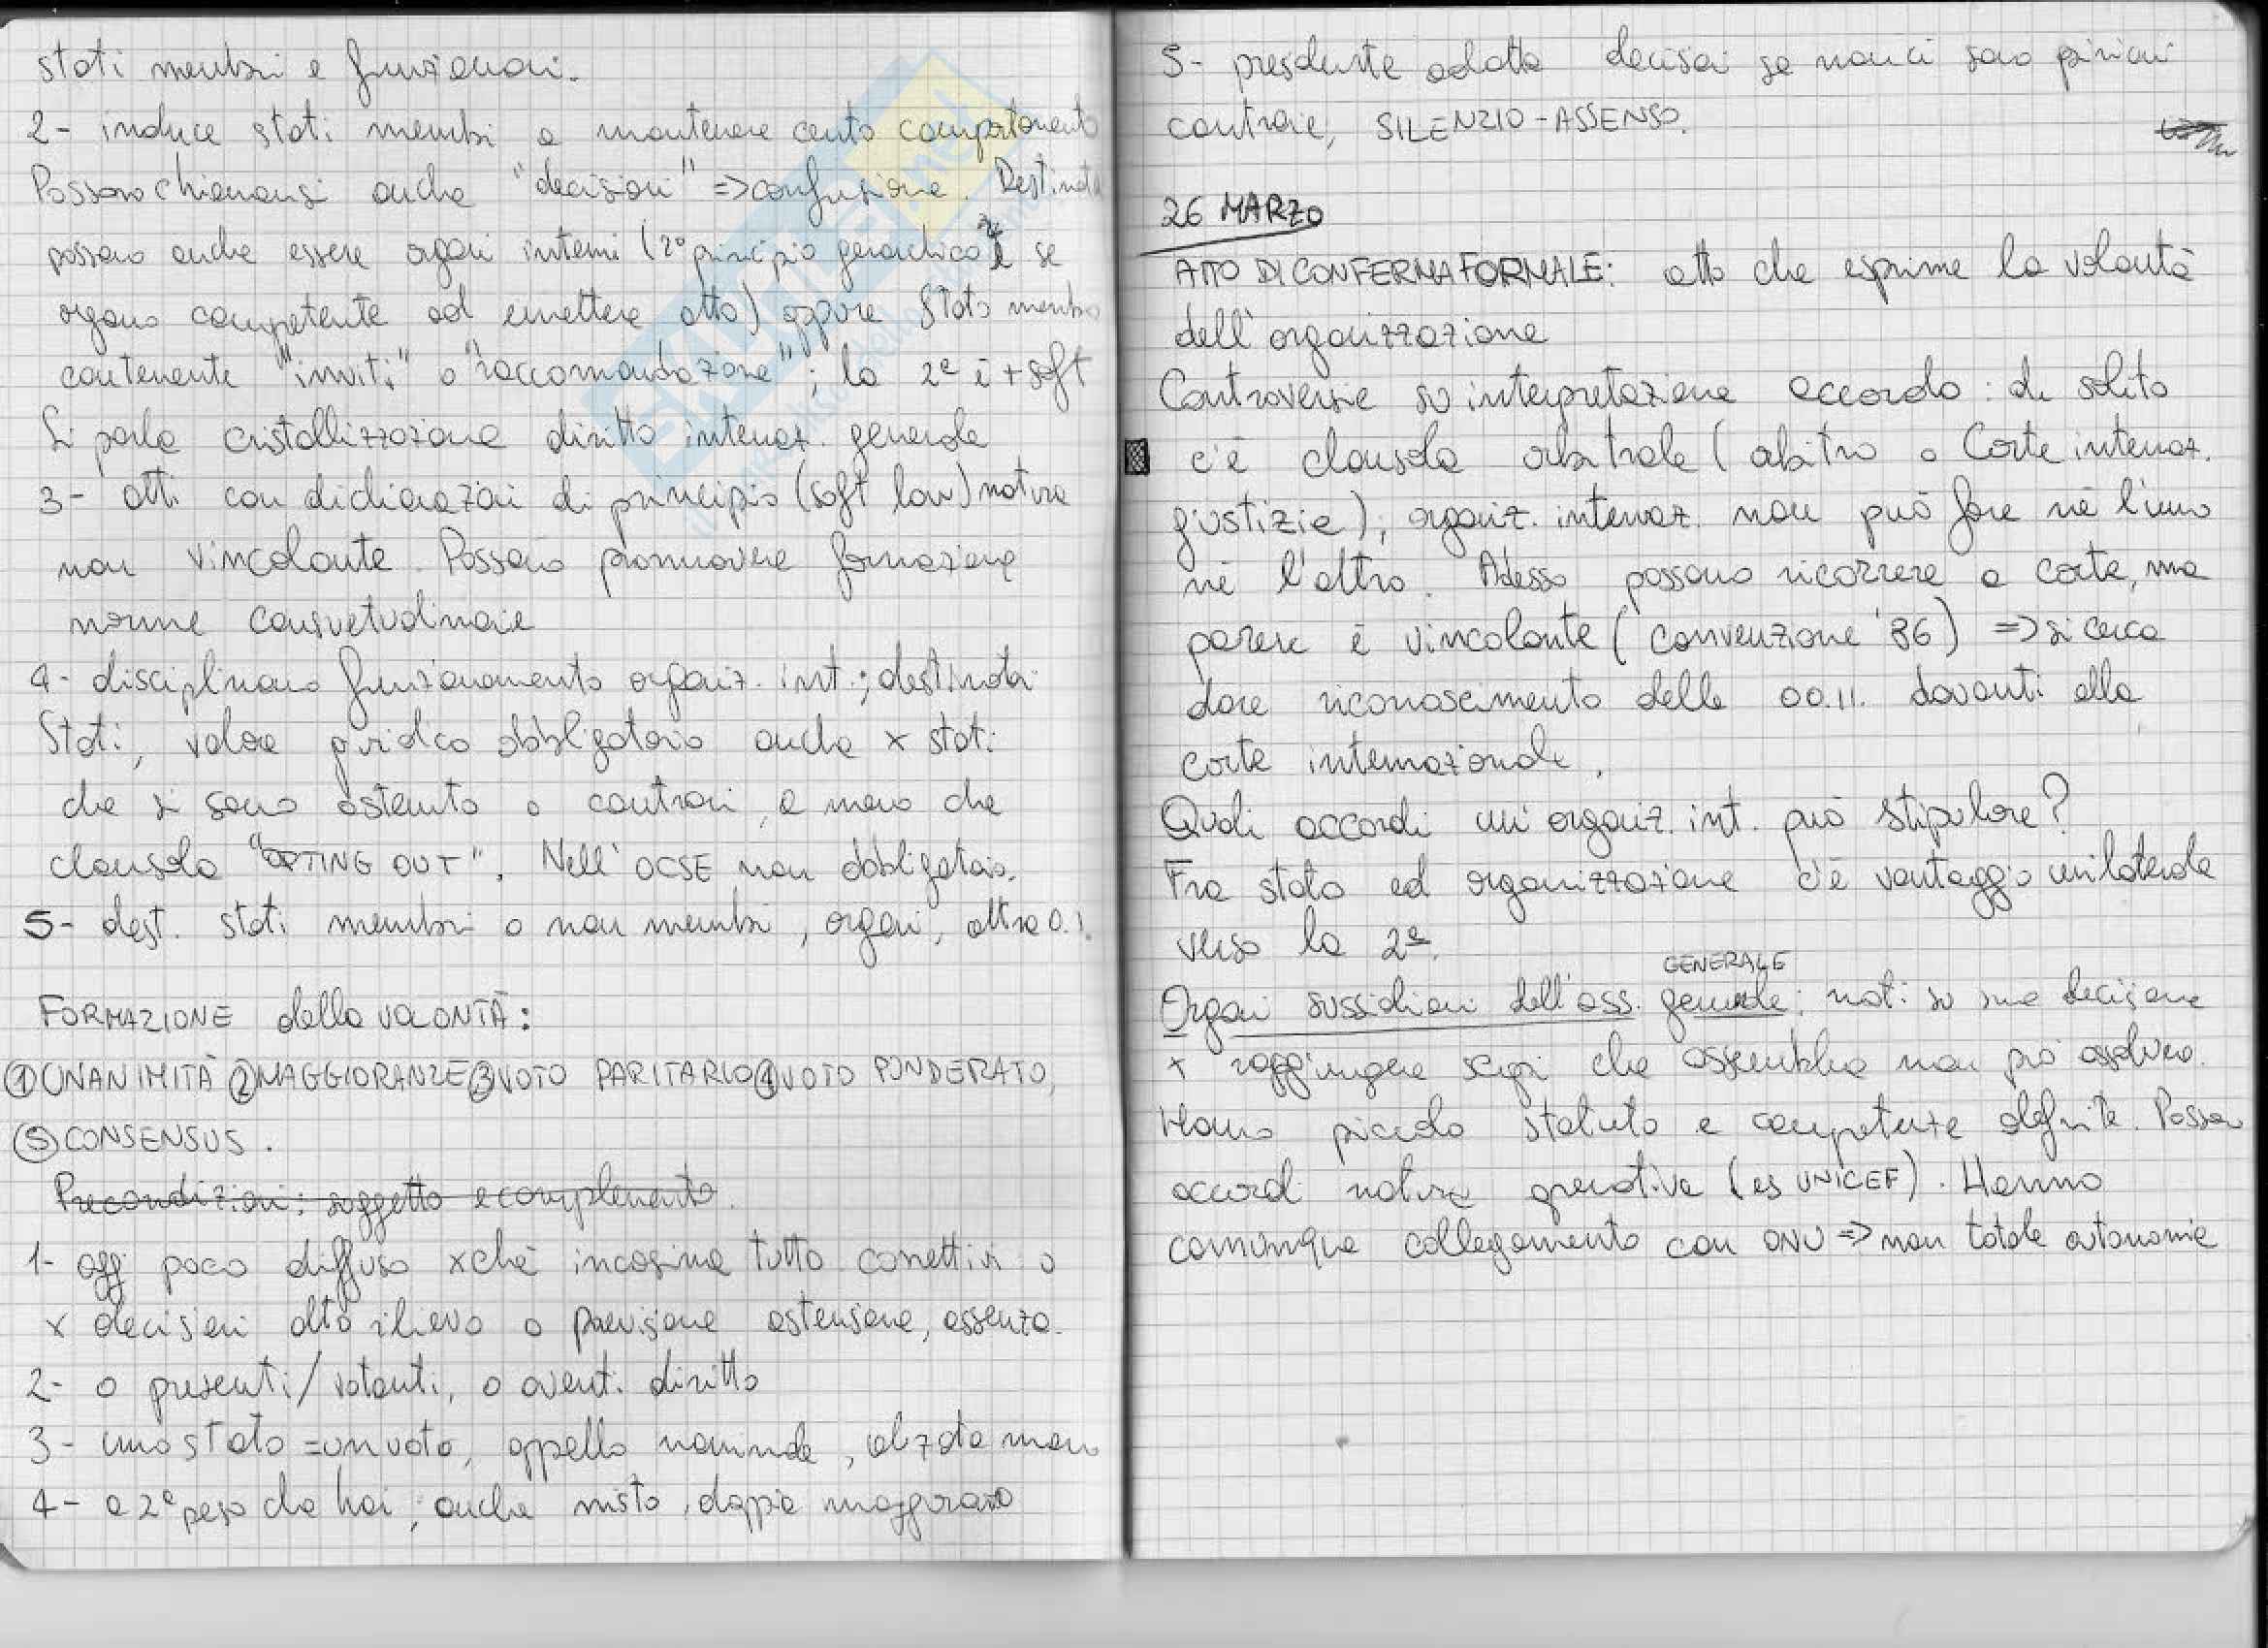 stati membri e funzionari.
2- induce stati membri a mantenere certo comportamento
Possono chiamarsi anche "decisioni" => confusione. Destinat
possono anche essere organi interni (2° principio gerarchico e se
organo competente ad emettere atto) oppure Stato membro
contenente "inviti" o "raccomandazione"; la 2ª è + soft
Si parla cristallizzazione diritto internaz. generale
3- atti con dichiarazioni di principio (soft law) natura
non vincolante. Possono promuovere formazione
norme consuetudinarie
4- disciplinano funzionamento organiz. int.; destinatari
Stati, valore giuridico obbligatorio anche x stati
che si sono astenuto o contrari, a meno che
clausola "OPTING OUT". Nell'OCSE non obbligatorio.
5- dest. stati membri o non membri, organi, altre O.I.
FORMAZIONE della VOLONTÀ:
①UNANIMITÀ ②MAGGIORANZE ③VOTO PARITARIO ④VOTO PONDERATO,
⑤CONSENSUS.
Precondizioni: soggetto e complemento.
1- oggi poco diffuso xchè incasina tutto correttivi o
x decisioni alto rilievo o previsione astensione, assenza.
2- o presenti/votanti, o aventi diritto
3- uno stato = un voto, appello nominale, alzata mano
4- a 2ª peso che hai; anche misto, doppia maggioranza
5- presidente adotta decisioni se non ci sono pareri
contrari, SILENZIO-ASSENSO.
26 MARZO
ATTO DI CONFERMA FORMALE: atto che esprime la volontà
dell'organizzazione
Controversie su interpretazione accordo: di solito
c'è clausola arbitrale (arbitro o Corte internaz.
giustizia), organiz. internaz. non può fare nè l'uno
nè l'altro. Adesso possono ricorrere a corte, ma
parere è vincolante (convenzione '86) => si cerca
dare riconoscimento delle OO.II. davanti alla
corte internazionale.
Quali accordi un'organiz. int. può stipulare?
Fra stato ed organizzazione c'è vantaggio unilaterale
verso la 2ª.
GENERALE
Organi sussidiari dell'ass. generale: nati su sua decisione
x raggiungere scopi che assemblea non può assolvere.
Hanno piccolo statuto e competenze definite. Possono
accordi natura operativa (es UNICEF). Hanno
comunque collegamento con ONU => non totale autonomia